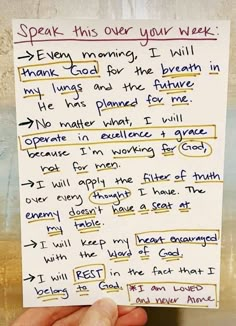 Speak this over your week:
→ Every morning, I will
thank God for the breath in
my lungs and the future
He has planned for me.
→ No matter what, I will
operate in excellence + grace
because I'm working for God,
not for men.
→ I will apply the filter of truth
over every thought I have. The
enemy doesn't have a seat at
my table.
→ I will keep my heart encouraged
with the Word of God.
→ I will REST in the fact that I
belong to God. *I am LOVED
and never Alone